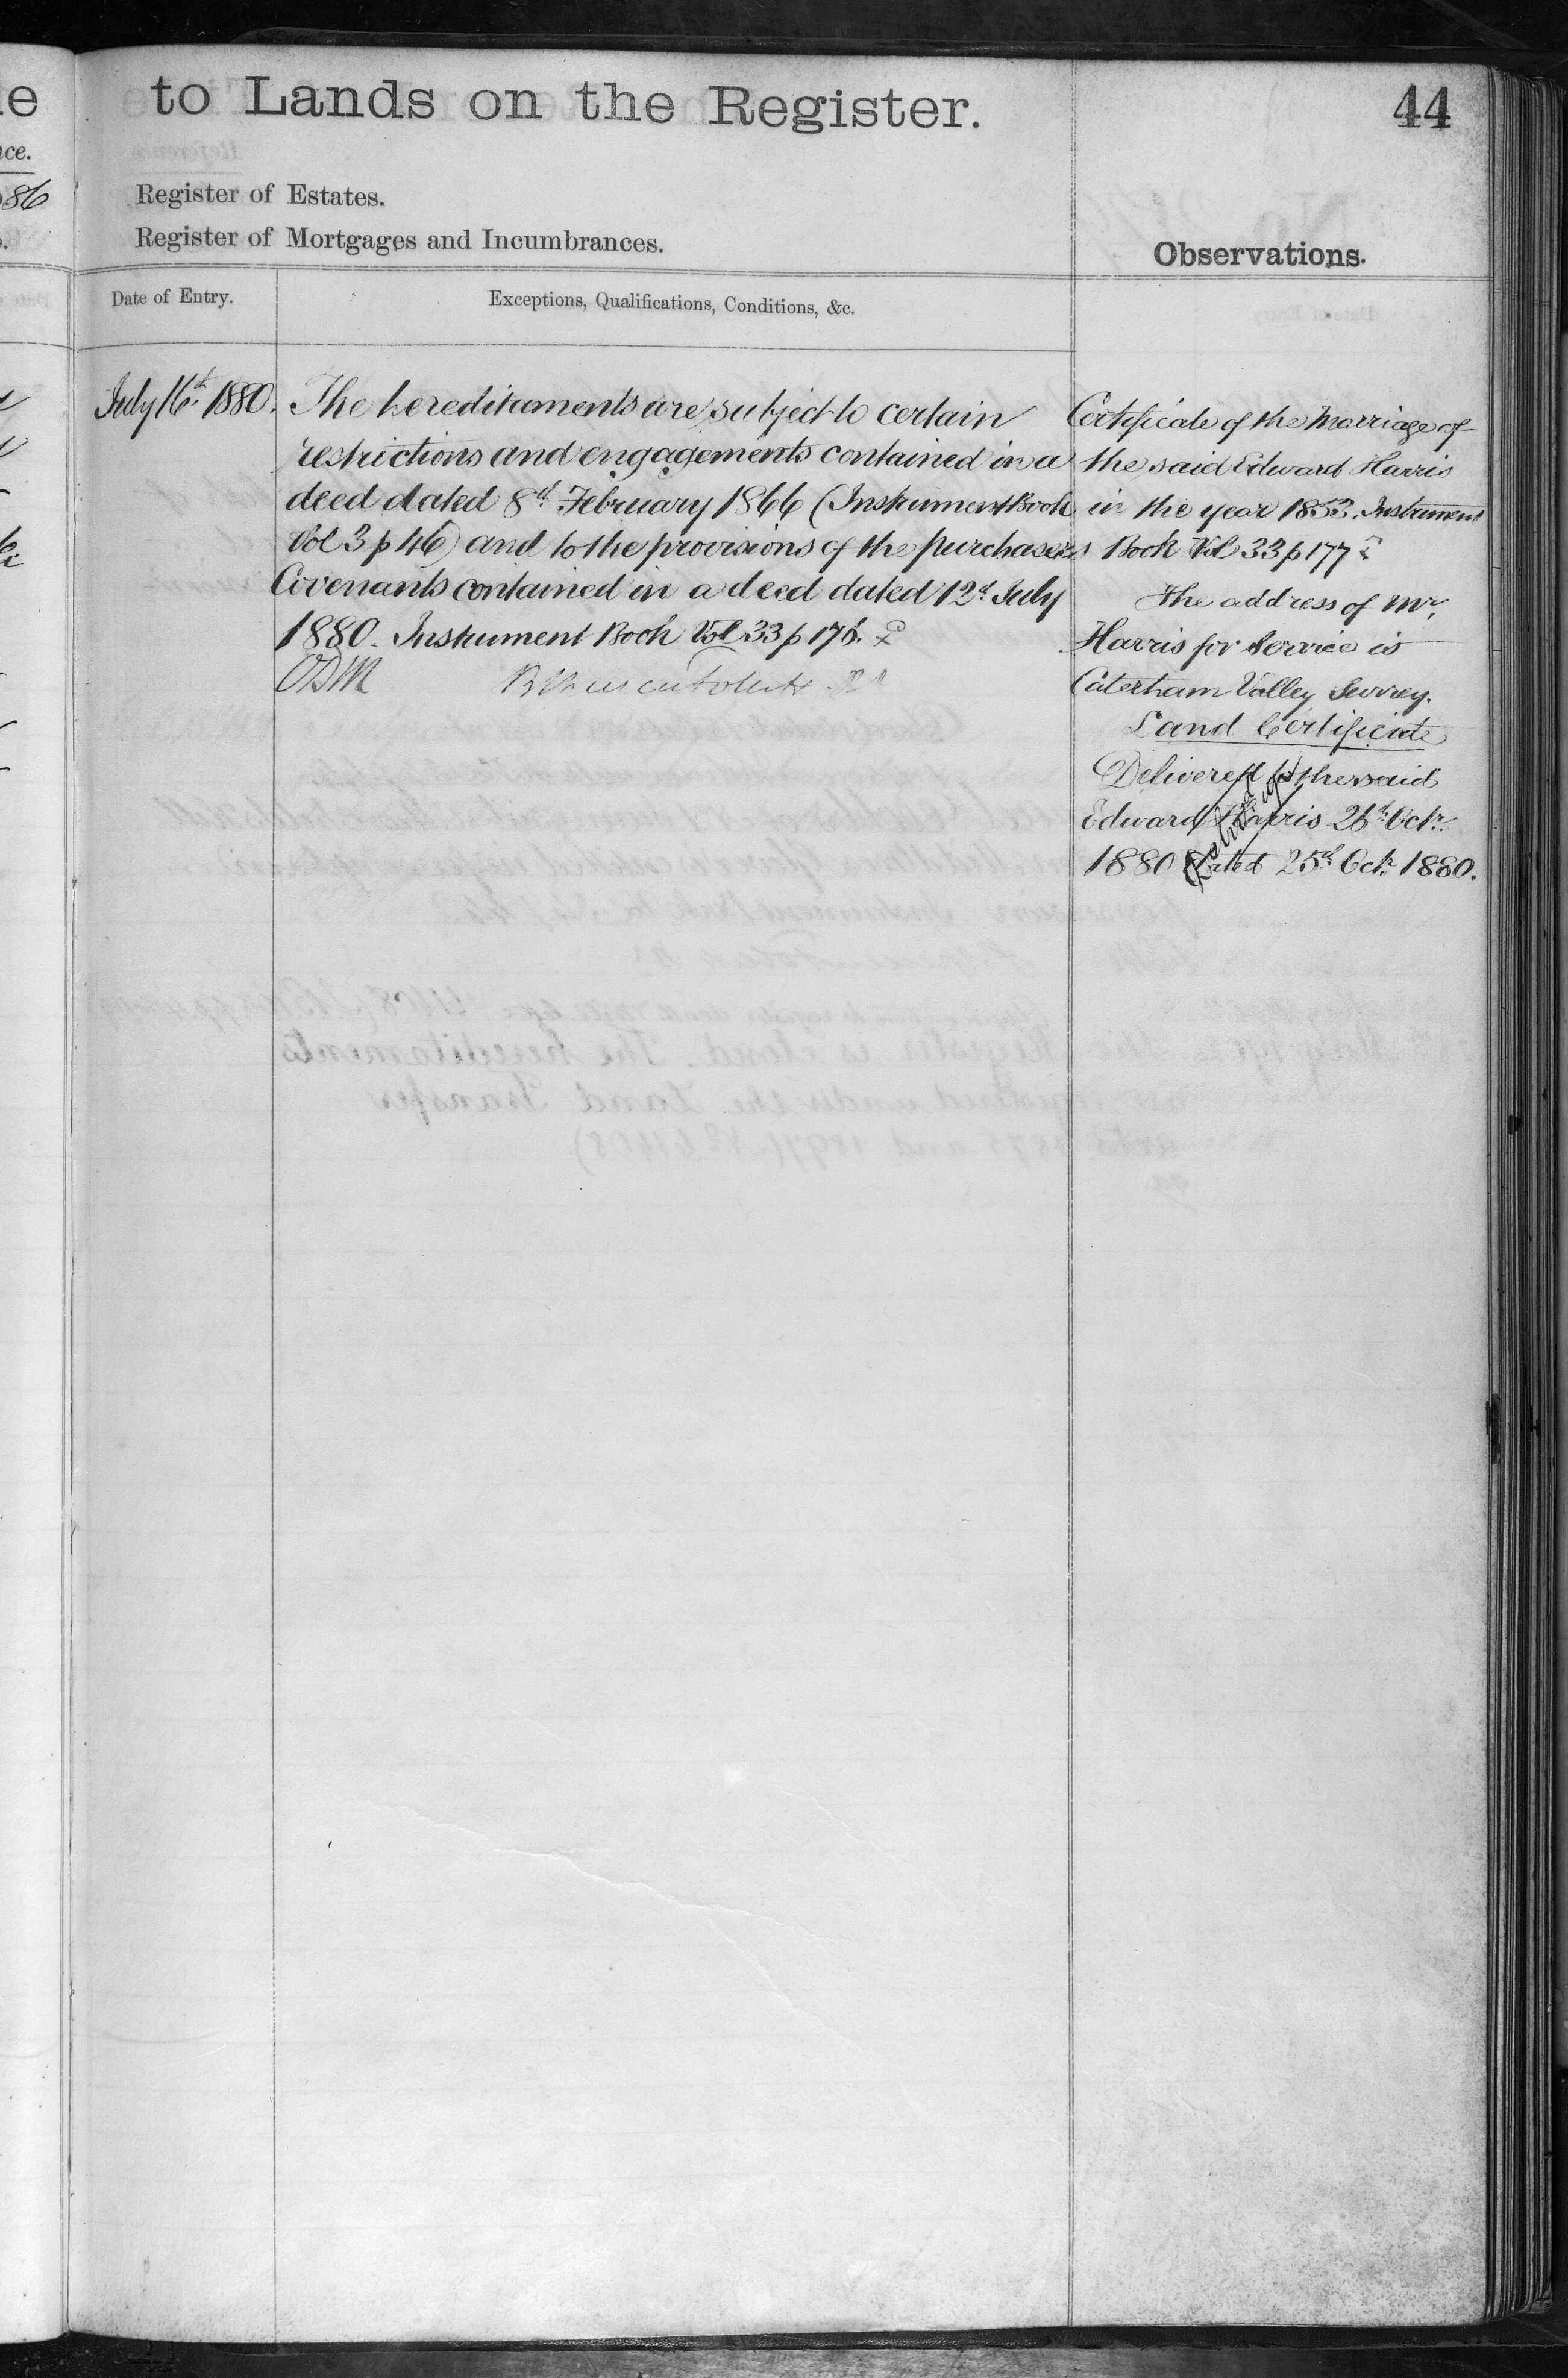 to Lands on the Register.
44
86
Register of Estates.
Register of Mortgages and Incumbrances.
Observations.
Date of Entry.
Exceptions, Qualifications, Conditions, &c.
July 16th 1880.
The hereditaments are subject to certain
restrictions and engagements contained in a
deed dated 8th February 1866 (Instrument Book
Vol 3 p 46) and to the provisions of the purchasers
Covenants contained in a deed dated 12th July
1880. Instrument Book Vol 33 p 176.
Certificate of the Marriage of
the said Edward Harris
in the year 1853. Instrument
Book Vol 33 p 177
The address of Mr
Harris for Service is
Caterham Valley Surrey.
Land Certificate
Delivered to the said
Edward Harris 26th Octr.
1880 dated 25th Octr 1880.